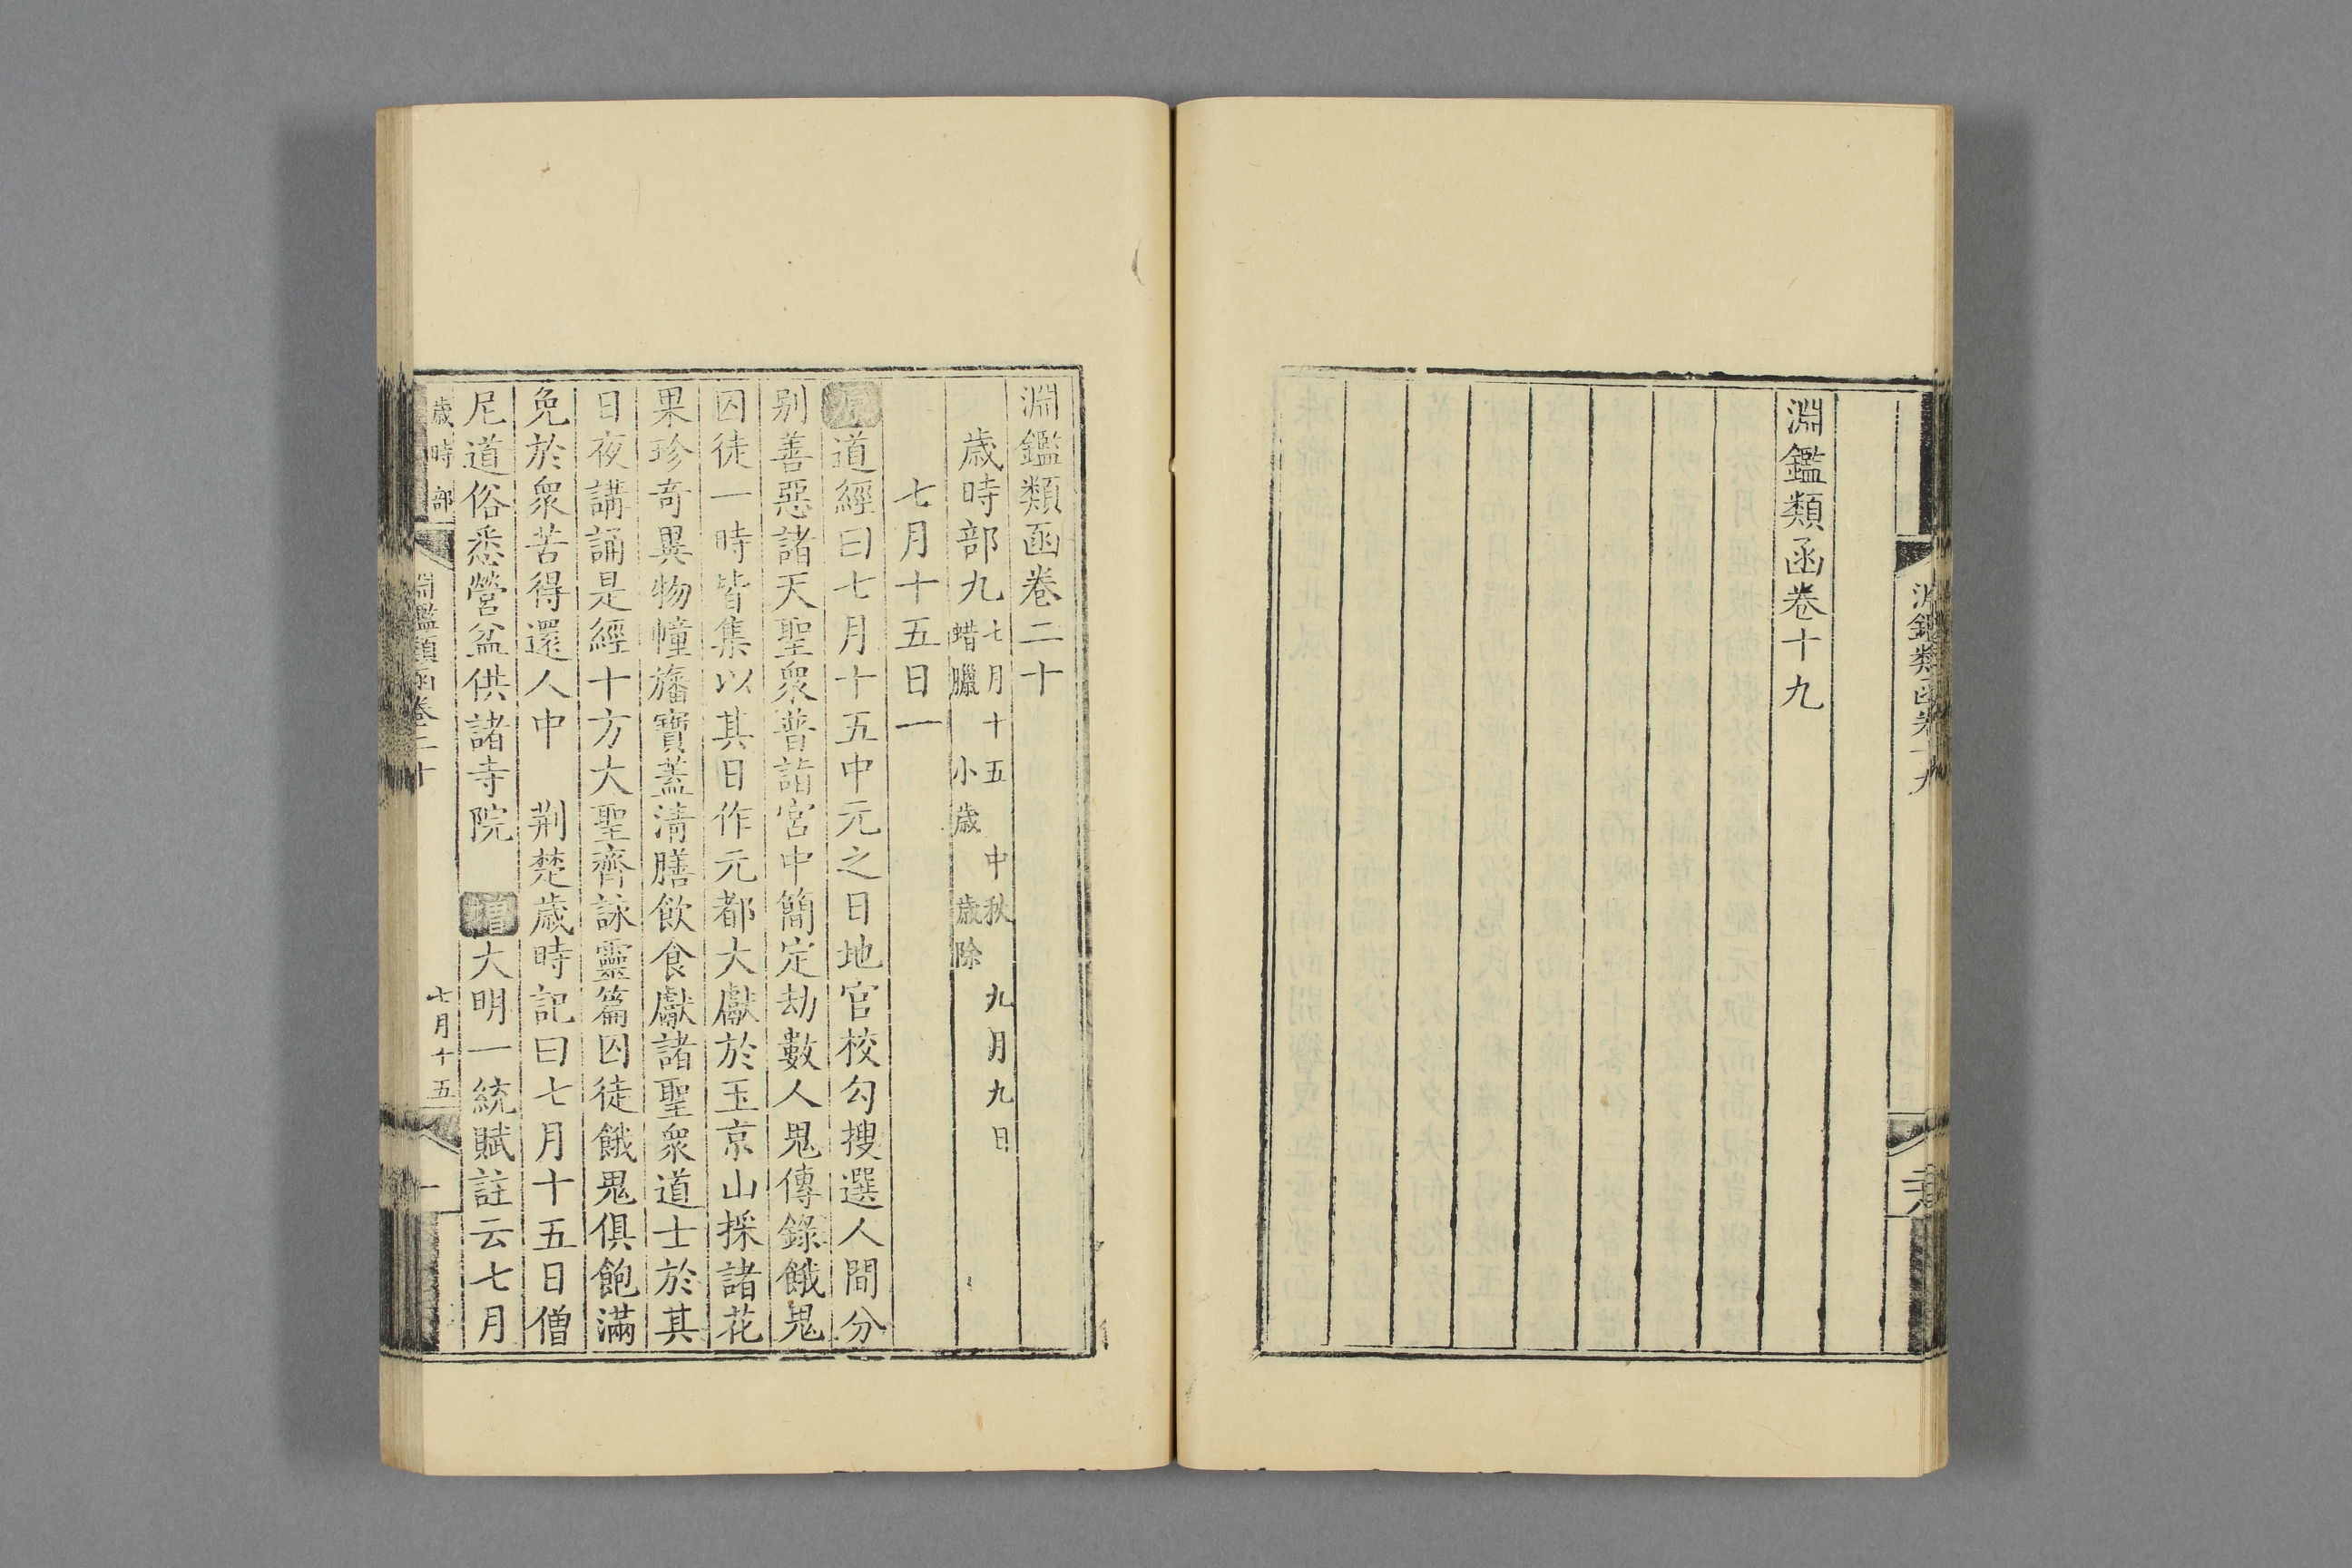 淵鑑類函卷十九
淵鑑類函卷二十
歲時部九 七月十五 中秋 九月九日
蜡臘 小歲 歲除
七月十五日一
原道經曰七月十五中元之日地官校勾搜選人間分
別善惡諸天聖衆普詣宮中簡定劫數人鬼傳錄餓鬼
囚徒一時皆集以其日作元都大獻於玉京山採諸花
果珍奇異物幢旛寶蓋清膳飲食獻諸聖衆道士於其
日夜講誦是經十方大聖齊詠靈篇囚徒餓鬼俱飽滿
免於衆苦得還人中 荆楚歲時記曰七月十五日僧
尼道俗悉營盆供諸寺院 增大明一統賦註云七月
歲時部
淵鑑類函卷二十
七月十五
一